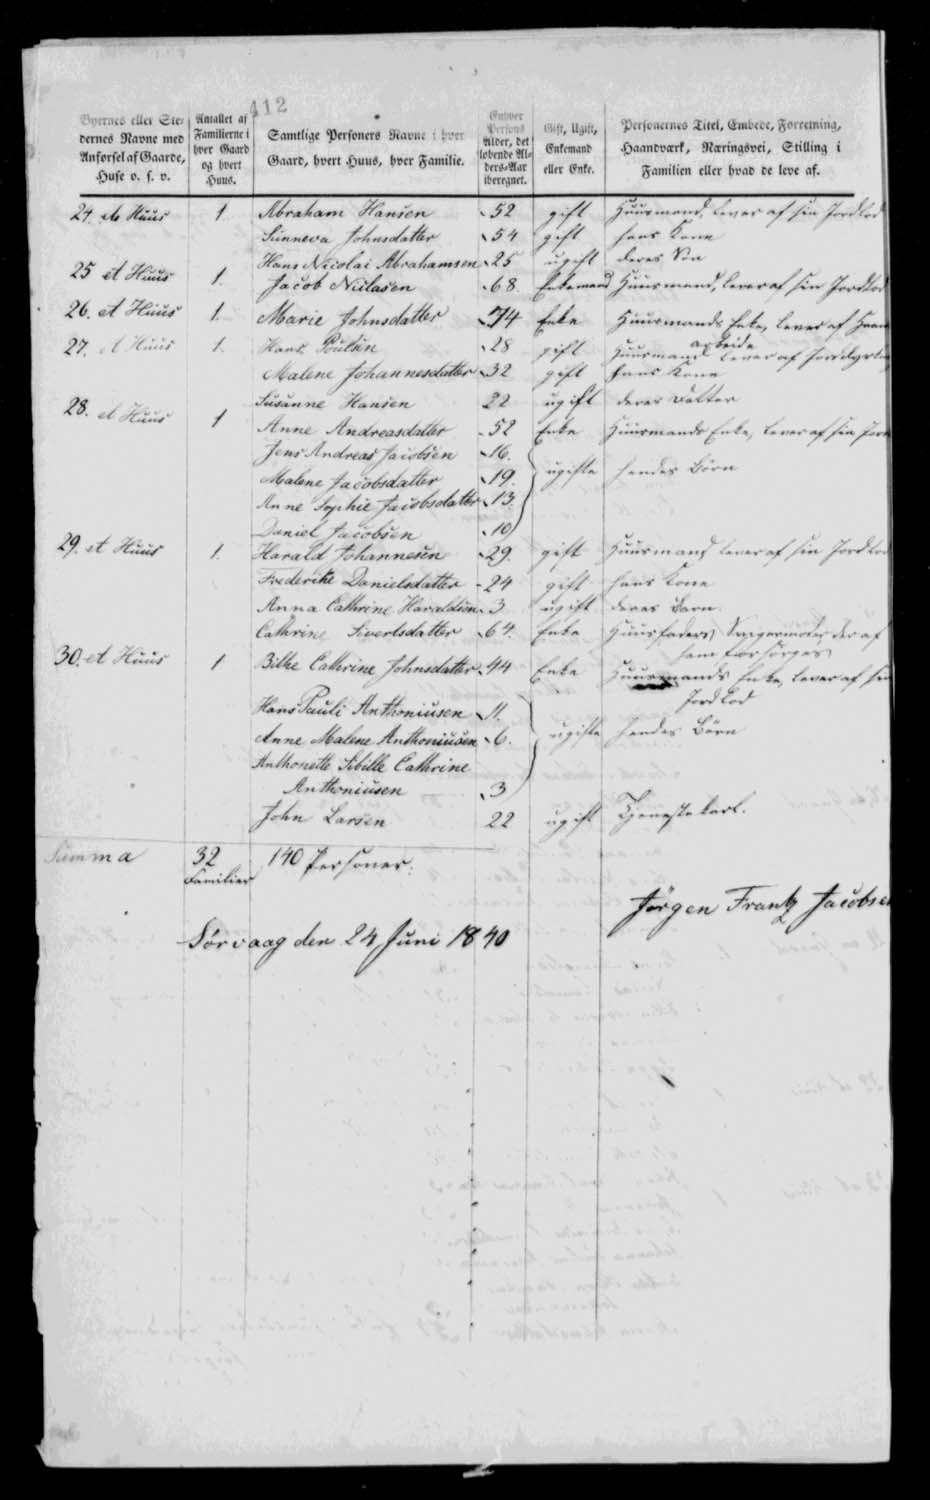 112
Byernes eller Ste- dernes Navne med Anførsel af Gaarde, Huse o. s. v.
Antallet af Familierne i hver Gaard og hvert Huus.
Samtlige Personers Navne i hver Gaard, hvert Huus, hver Familie.
Enhver Persons Alder, det løbende Al- ders-Aar iberegnet.
Gift, Ugift, Enkemand eller Enke.
Personernes Titel, Embede, Forretning, Haandværk, Næringsvei, Stilling i Familien eller hvad de leve af.
24. et Huus 1. Abraham Hansen 52 gift Huusmand, lever af sin Jordlod
Sunneva Johnsdatter 54 gift hans Kone
Hans Nicolai Abrahamsen 25 ugift deres Søn
25 et Huus 1. Jacob Niclasen 68. Enkemand Huusmand, lever af sin Jordlod
26. et Huus 1. Marie Johnsdatter 74 Enke Huusmands Enke, lever af
arbeide
27. et Huus 1. Hans Poulsen 28 gift Huusmand lever af
Malene Johannesdatter 32 gift hans Kone
Susanne Hansen 22 ugift deres Datter
28. et Huus 1 Anne Andreasdatter 52 Enke Huusmands Enke, lever af sin
Jens Andreas Jacobsen 16.
Malene Jacobsdatter 19. ugifte hendes Børn
Anne Sophie Jacobsdatter 13.
Daniel Jacobsen 10
29. et Huus 1. Harald Johannesen 29. gift Huusmand lever af sin Jordlod
Frederike Danielsdatter 24 gift hans Kone
Anna Cathrine Haraldsen 3 ugift deres Barn.
Cathrine Sivertsdatter 64. Enke Huusfaders Svigermoder der af
ham forsørges
30. et Huus 1 Bille Cathrine Johnsdatter 44 Enke Huusmands Enke, lever af sin
Jordlod
Hans Pauli Anthoniusen 11.
Anne Malene Anthoniusen 6. ugifte hendes Børn
Anthonette Sibille Cathrine
Anthoniusen 3
John Larsen 22 ugift Tjenestekarl.
Summa 32 140 Personer.
Familier
Jørgen Frantz Jacobsen
Sørvaag den 24 Juni 1840